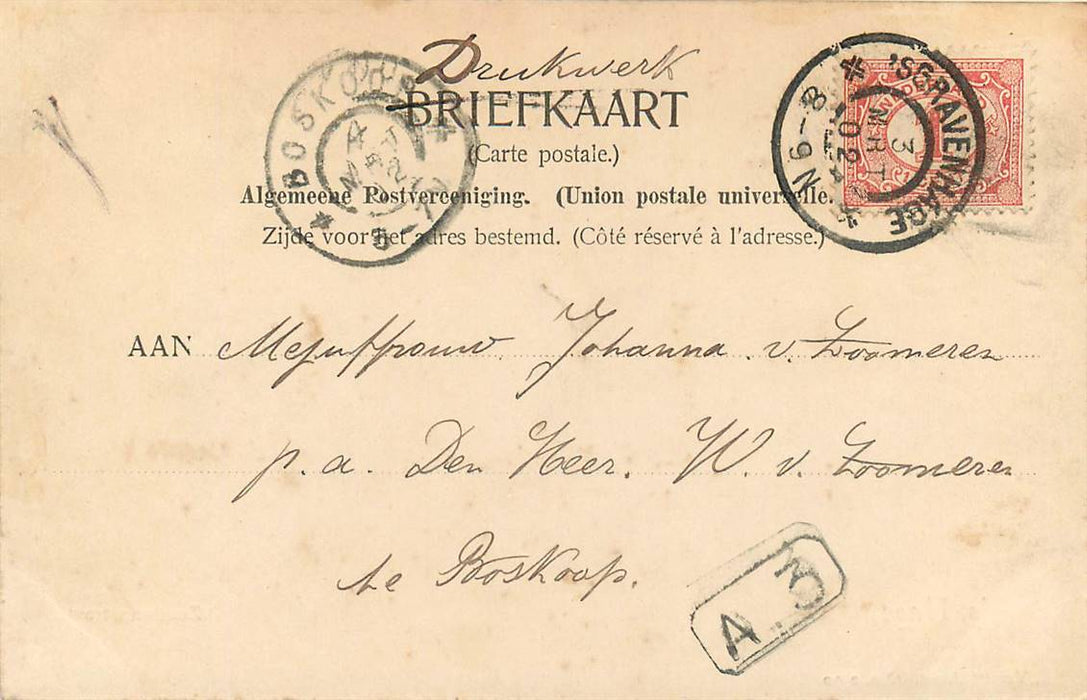 Drukwerk
BRIEFKAART
(Carte postale.)
Algemeene Postvereeniging. (Union postale universelle.
Zijde voor het adres bestemd. (Côté réservé à l'adresse.)
BOSKOOP
'SGRAVENHAGE
3 MRT 02
8-9N
AAN Mejuffrouw Johanna v. Zoomeren
p. a. Den Heer. W. v. Zoomeren
te Boskoop.
A